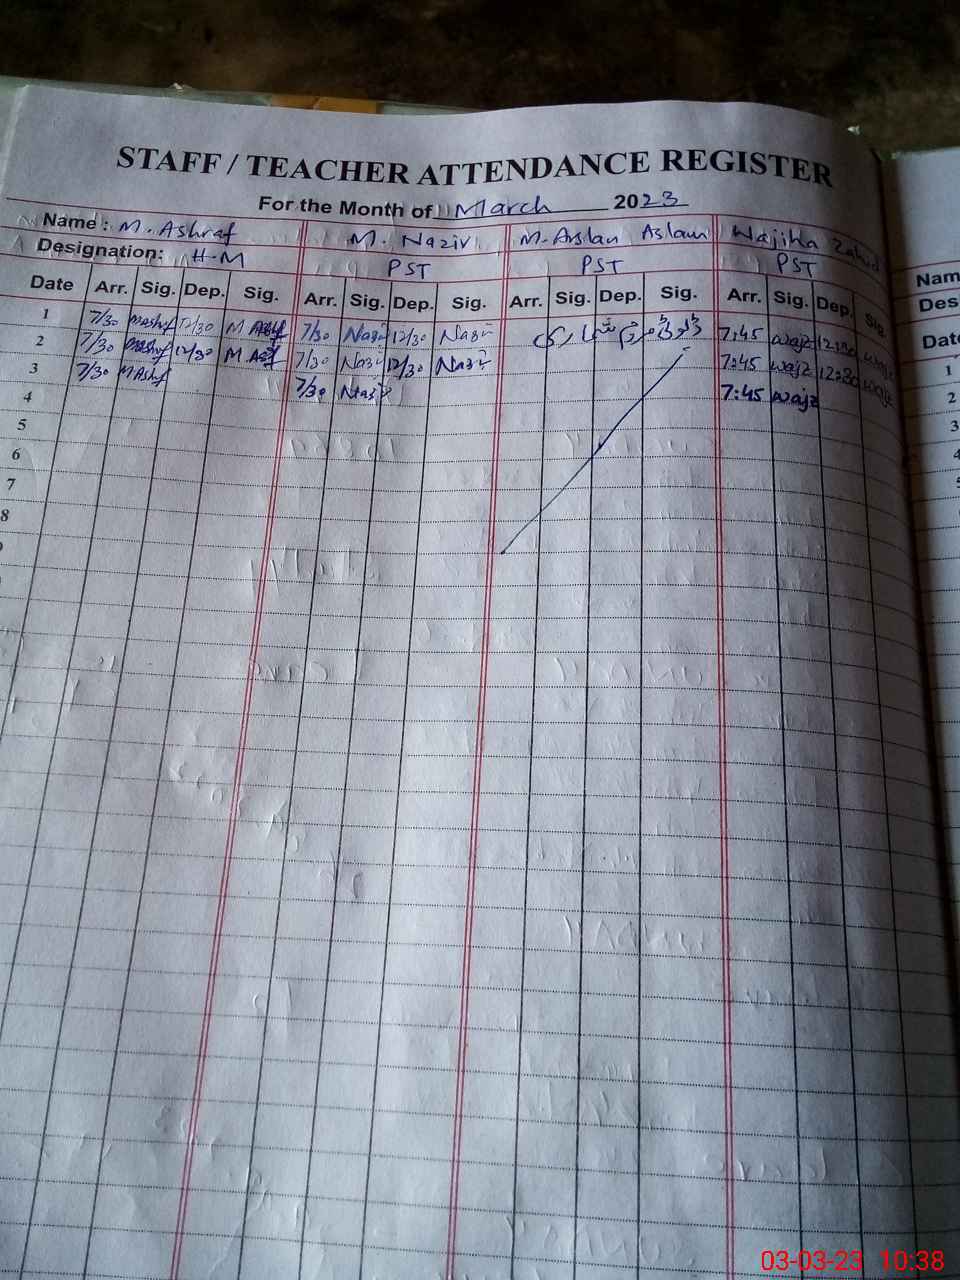 STAFF / TEACHER ATTENDANCE REGISTER
For the Month of March 2023
Name : M. Ashraf M. Nazir M. Arslan Aslam Wajiha Zahid
Designation: H-M PST PST PST
Date Arr. Sig. Dep. Sig. Arr. Sig. Dep. Sig. Arr. Sig. Dep. Sig. Arr. Sig. Dep. Sig.
1 7/30 MAshf 12/30 M Ashf 7/30 Nazir 12/30 Nazir ڈیوٹی مردم شماری 7:45 wajz 12:30 wajz
2 7/30 MAshf 12/30 M Ashf 7/30 Nazir 12/30 Nazir 7:45 wajz 12:30 wajz
3 7/30 MAshf 7/30 Nazir 7:45 wajz
4
5
6
7
8
9
Name
Des
Date
1
2
3
4
5
03-03-23 10:38